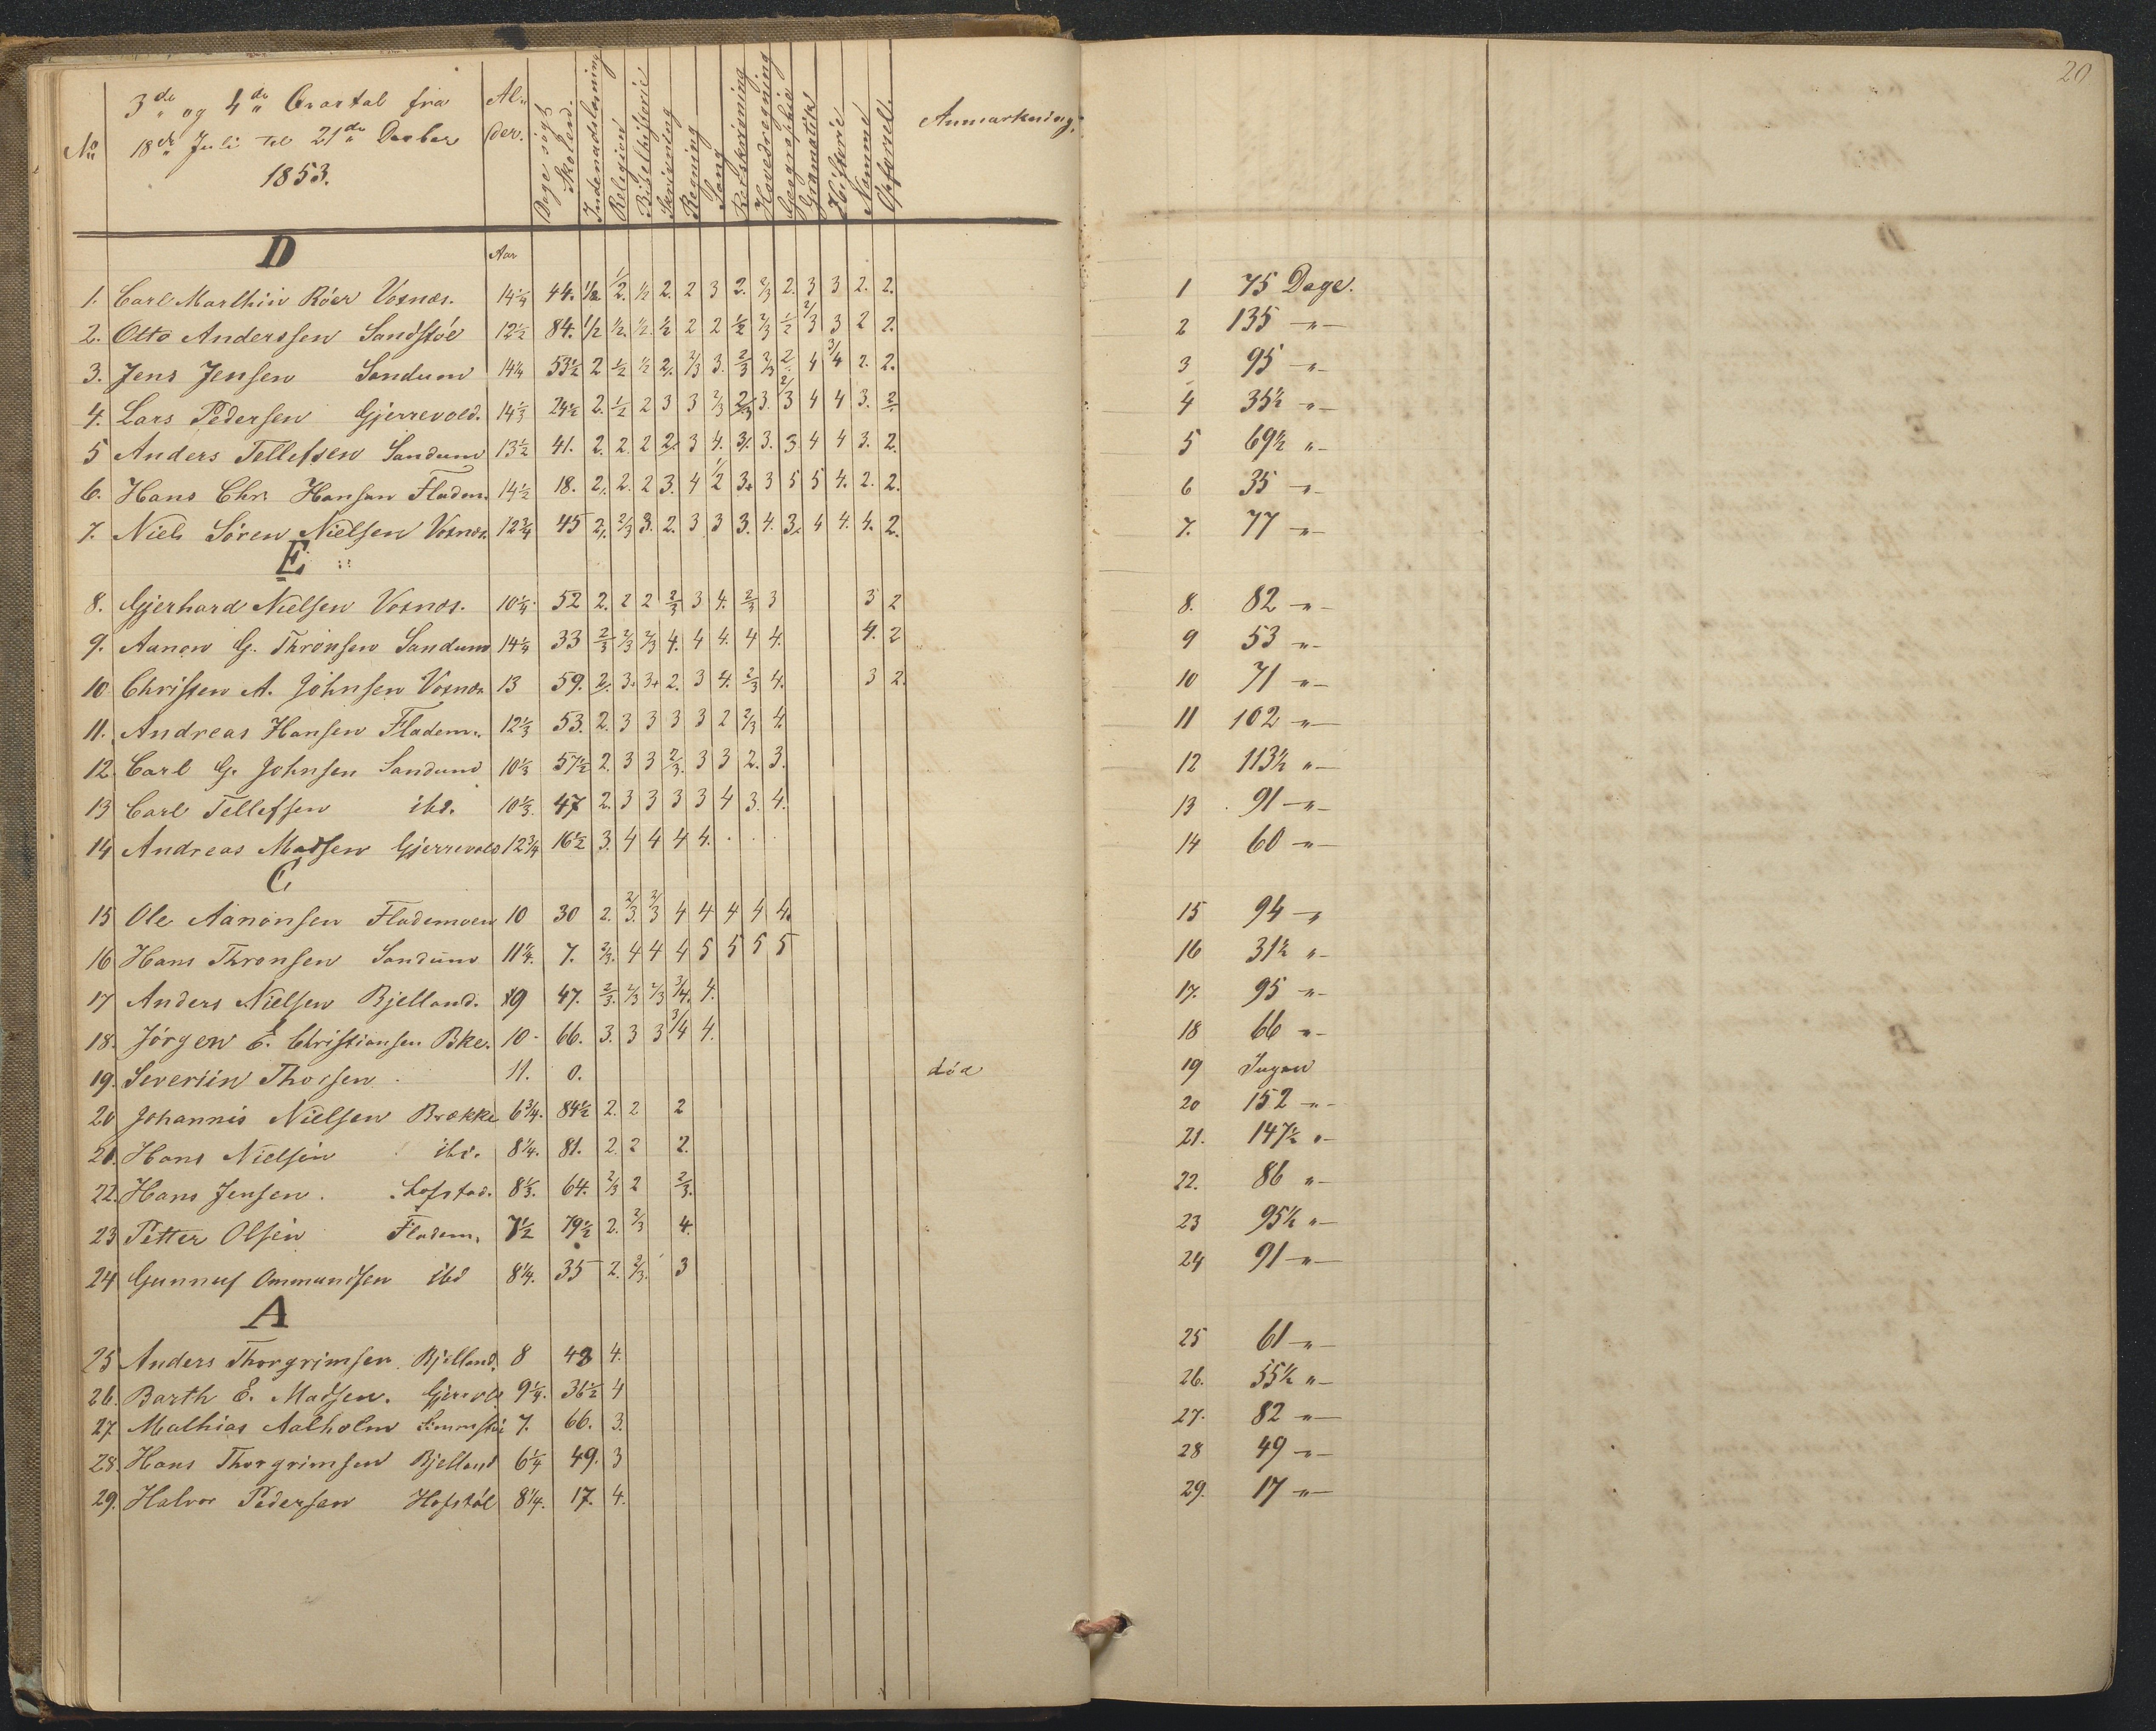 20
3de og 4de Qvartal fra
18de Juli til 21de Decber
1853.
No
Al-
der.
Dage søgt Skolen.
Indenadslæsning
Religion
Bibelhistorie
Skrivning
Regning
Sang
Retskrivning
Hovedregning
Geographie
Gramatik
Historie
Nemme
Opførsel.
Anmærkning.
D
Aar
1. Carl Marthin Röer Voxnæs. 14 1/4 44. 1/2 1/2. 1/2 2. 2 3 2. 2/3 2. 3 3 2. 2.
2. Otto Anderssen Sandstöl 12 1/2 84. 1/2 1/2. 1/2. 1/2 2 2 1/2 2/3 1/2 2/3 3 2 2.
3. Jens Jensen Sandum 14 1/4 53 1/2 2 1/2 1/2 2. 2/3 3. 2/3 2/3 2. 4 3/4 2. 2.
4. Lars Pedersen Gjerrevold. 14 1/3 24 1/2 2. 1/2 2 3 3 2/3 2/3 3. 2/3 4 4 3. 2
5 Anders Tellefsen Sandum 13 1/2 41. 2. 2. 2 2. 3 4. 3. 3. 3. 4 4 3. 2.
6. Hans Chr. Hansen Fladem. 14 1/2 18. 2. 2. 2 3. 4 1/2 3. 3 5 5 4. 2. 2.
7. Niels Sören Nielsen Voxnæs 12 3/4 45 2. 2/3 3. 2. 3 3 3. 4. 3. 4 4. 4. 2.
E
8. Gjerhard Nielsen Voxnæs. 10 1/4 52 2. 2 2 2/3 3 4. 2/3 3 3 2
9. Aanon G. Thronsen Sandum 14 1/4 33 2/3 2/3 2/3 4. 4 4. 4 4. 4. 2
10 Christen A. Johnsen Voxnæs 13 59. 2. 3. 3. 2. 3 4. 2/3 4. 3 2.
11. Andreas Hansen Fladem. 12 1/3 53. 2. 3 3 3 3 2 2/3 4
12. Carl G. Johnsen Sandum 10 1/3 57 1/2 2. 3 3 2/3. 3 3 2. 3.
13 Carl Tellefsen ibd. 10 1/3. 47 2. 3 3 3 3 4 3. 4.
14 Andreas Madsen Gjerrevold 12 3/4 16 1/2 3. 4 4 4 4.
C
15 Ole Aanonsen Flademoen 10 30 2. 2/3. 2/3 4 4 4 4 4.
16 Hans Thronsen Sandum 11 1/4. 7. 2/3. 4 4 4 5 5 5 5
17 Anders Nielsen Bjelland. 9 47. 2/3. 2/3 2/3 3/4. 4.
18. Jörgen E. Christiansen Bke. 10 66. 3. 3 3 3/4 4.
19. Severiin Thorsen 11. 0. död
20 Johannis Nielsen Brække 6 3/4. 84 1/2 2. 2 2
21. Hans Nielsen ibd. 8 1/4. 81. 2. 2 2.
22. Hans Jensen. Lofstad. 8 1/3. 64. 2/3 2 2/3.
23 Petter Olsen Fladem. 7 1/2 79 1/2 2. 2/3 4.
24 Gunnuf Ommundsen ibd 8 1/4. 35 2. 2/3. 3
A
25 Anders Thorgrimsen Bjelland. 8 43 4.
26. Barth E. Madsen. Gjerrvld 9 1/4. 36 1/2 4
27 Mathias Aalholm 7. 66. 3.
28. Hans Thorgrimsen Bjelland 6 1/4 49. 3
29. Halvor Pedersen Hofstöl 8 1/4. 17. 4.
1 75 Dage.
2 135 -"-
3 95 -"-
4 35 1/2 "-
5 69 1/2 "-
6 35 -"-
7. 77 -"-
8. 82 -"-
9 53 "-
10 71 -"-
11 102 -"-
12 113 1/2 "-
13 91 -"-
14 60 -"-
15 94 -"
16 31 1/2 "-
17. 95 "-
18 66 "-
19 Ingen
20 152 -"-
21. 147 1/2 "-
22. 86 "-
23 95 1/2 "-
24 91 -"-
25 61 -"-
26. 55 1/2 "-
27. 82 -"-
28 49 -"-
29. 17 -"-